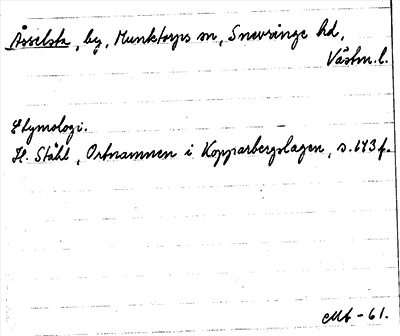 Åsselsta, by, Munktorps sn, Snevringe hd,
Västm.l.
Etymologi.
H. Ståhl, Ortnamnen i Kopparbergslagen, s. 143 f.
-61.